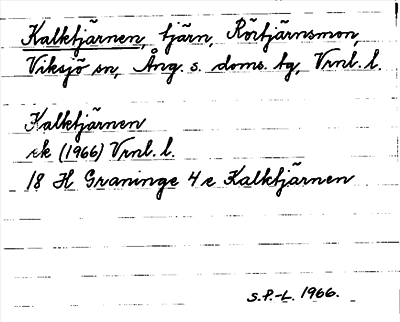 Kalktjärnen, tjärn, Rörtjärnsmon,
Viksjö sn, Ång. s. doms. tg, Vrnl. l.
Kalktjärnen
ek (1966) Vrnl. l.
18 H Graninge 4 e Kalktjärnen
S.P.-L. 1966.